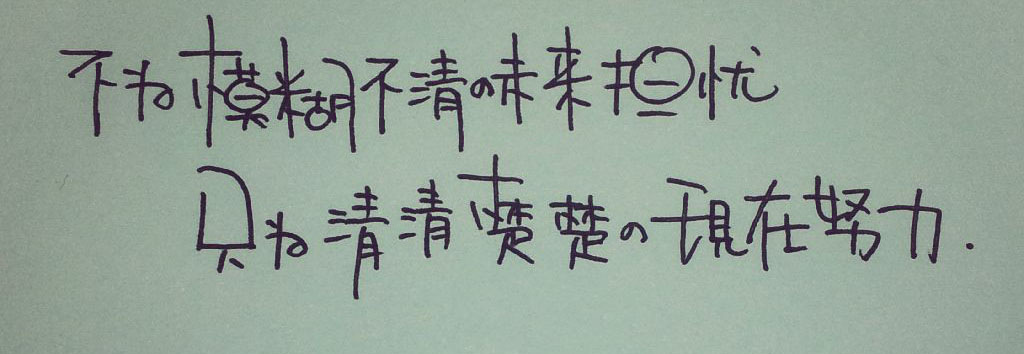 不为模糊不清の未来担忧
只为清清楚楚の现在努力.